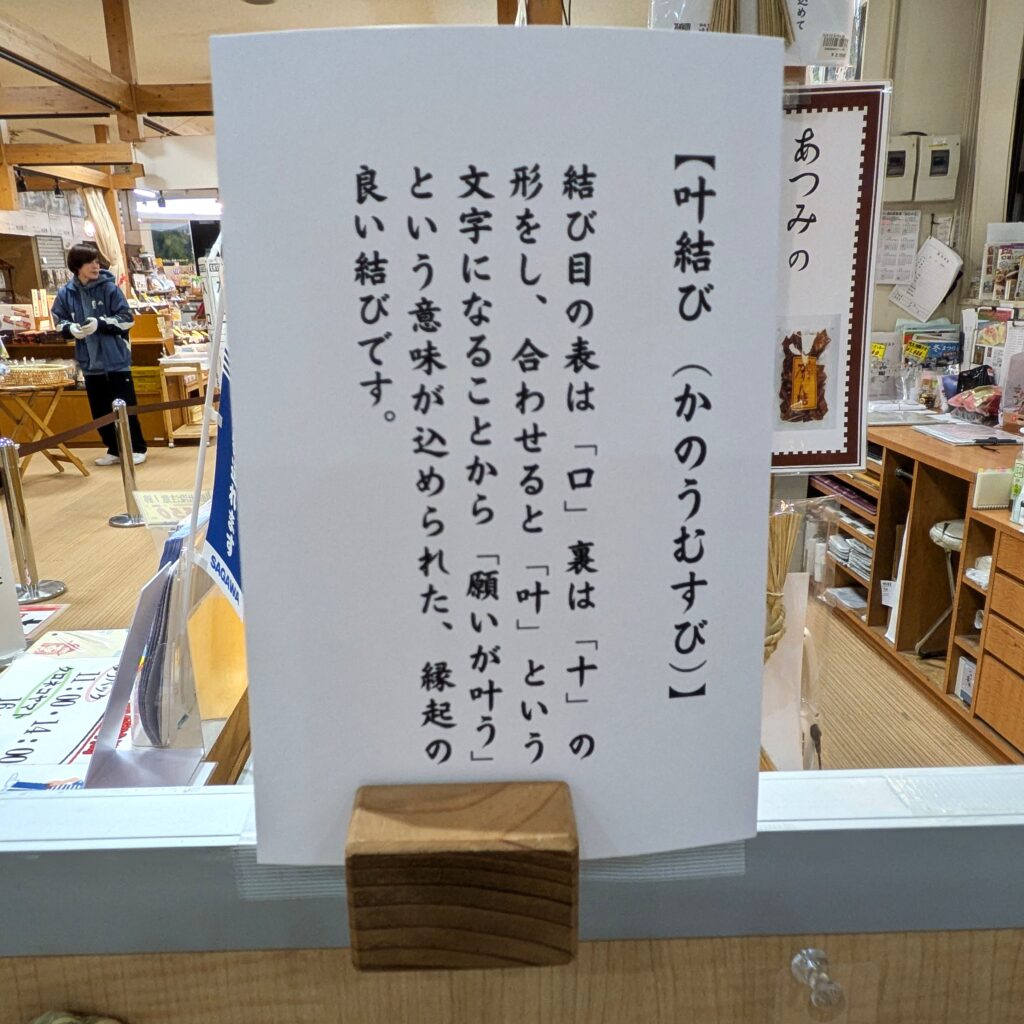 【叶結び （かのうむすび）】
結び目の表は「口」裏は「十」の
形をし、合わせると「叶」という
文字になることから「願いが叶う」
という意味が込められた、縁起の
良い結びです。
あつみの
SAGAWA
クロネコヤマト
11:00・14:00